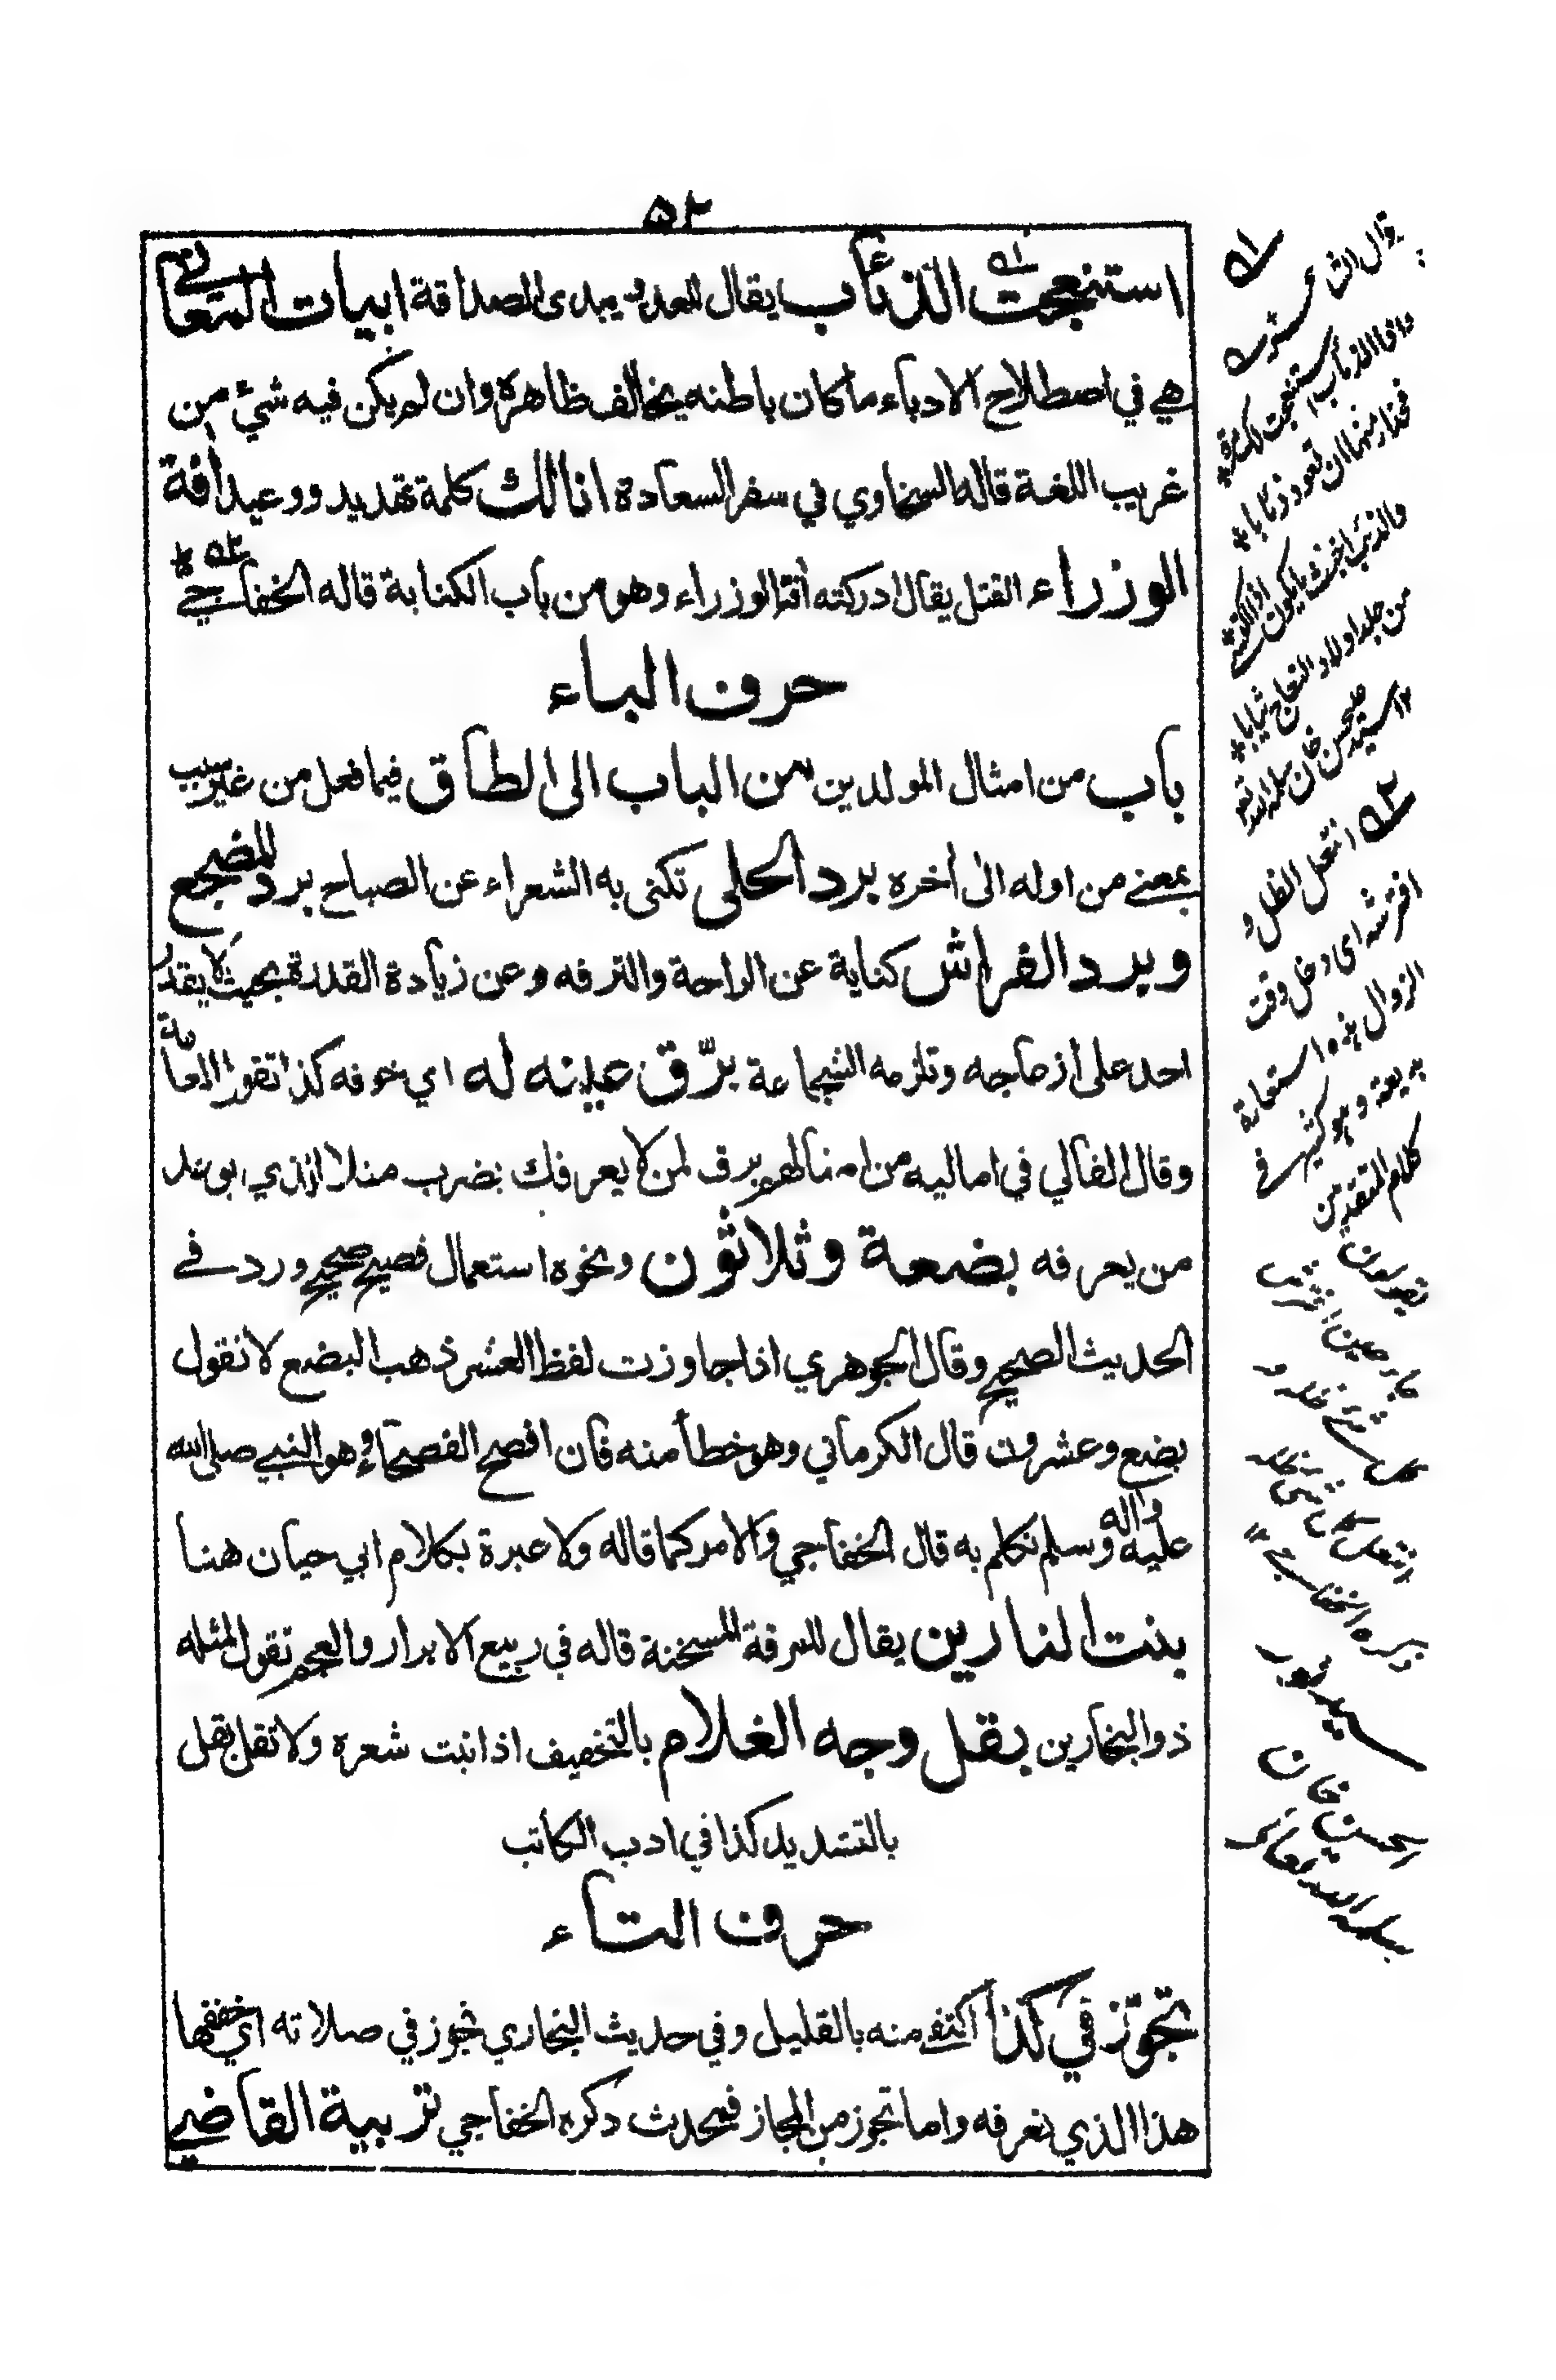 ٥٢
استنعجت الذئاب يقال للعدو يبدى الصداقة ابيات المعاني
هي في اصطلاح الادباء ما كان باطنه يخالف ظاهره وان لم يكن فيه شئ من
غريب اللغة قاله السخاوي في سفر السعادة انا لك كلمة تهديد ووعيد أفة
الوزراء القتل يقال ادركته أفة الوزراء وهو من باب الكناية قاله الخفاجي
حرف الباء
باب من امثال المولدين من الباب الى الطاق فيما فعل من غير سبب
بمعنے من اوله الى أخره برد الحلى تكنى به الشعراء عن الصباح برد المضجع
وبرد الفراش كناية عن الراحة والترفه وعن زيادة القدرة بحيث لا يقدر
احد على ازعاجه وتلزمه الشجاعة برّق عينه له اي خوفه كذا تقول العامة
وقال القالي في اماليه من امثالهم برق لمن لا يعرفك يضرب مثلا للذي يوعد
من يعرفه بضعة وثلاثون ونحوه استعمال فصيح صحيح ورد في
الحديث الصحيح وقال الجوهري اذا جاوزت لفظ العشر ذهب البضع لا تقول
بضع وعشرون قال الكرماني وهو خطأ منه فان افصح الفصحاء وهو النبي صلى الله
عليه واله وسلم تكلم به قال الخفاجي والامر كما قاله ولا عبرة بكلام ابي حيان هنا
بنت النارين يقال للمرقة المسخنة قاله في ربيع الابرار والعجم تقول لمثله
ذو البخارين بقل وجه الغلام بالتخفيف اذا نبت شعره ولا تقل بقل
بالتشديد كذا في ادب الكاتب
حرف التاء
تجوّز في كذا اكتفے منه بالقليل وفي حديث البخاري تجوز في صلاته اي خففها
هذا الذي نعرفه واما تجوز من المجاز فمحدث ذكره الخفاجي تربية القاضي
٥١
واذا الذئاب استنعجت لك مرة
فحذار منها ان تعود ذئابا
والذئب اخبث ما يكون اذا اكتسى
من جلد اولاد النعاج ثيابا
٥٢ انتعل الظل و
افترشه اى دخل وقت
الزوال هذه استعارة
بديعة وهو كثير في
كلام المتقدمين
ذكره الخفاجي ١٢
سيد نور
الحسن خان
سلمه الله تعالى